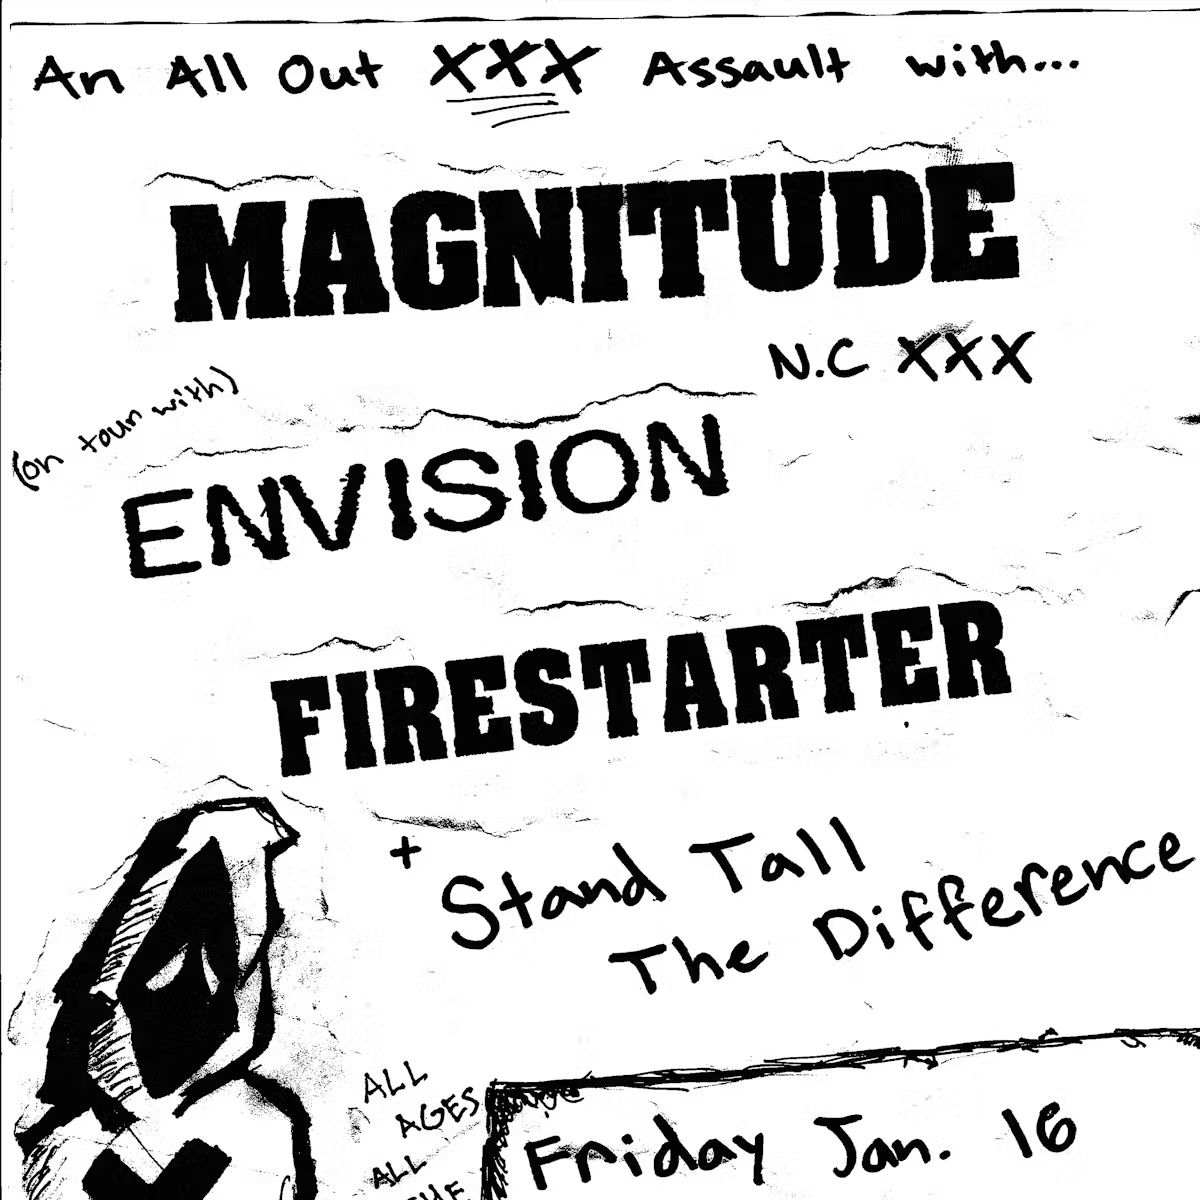 An All Out XXX Assault with...
MAGNITUDE
N.C XXX
(on tour with)
ENVISION
FIRESTARTER
+ Stand Tall
The Difference
ALL
AGES
ALL
Friday Jan. 16